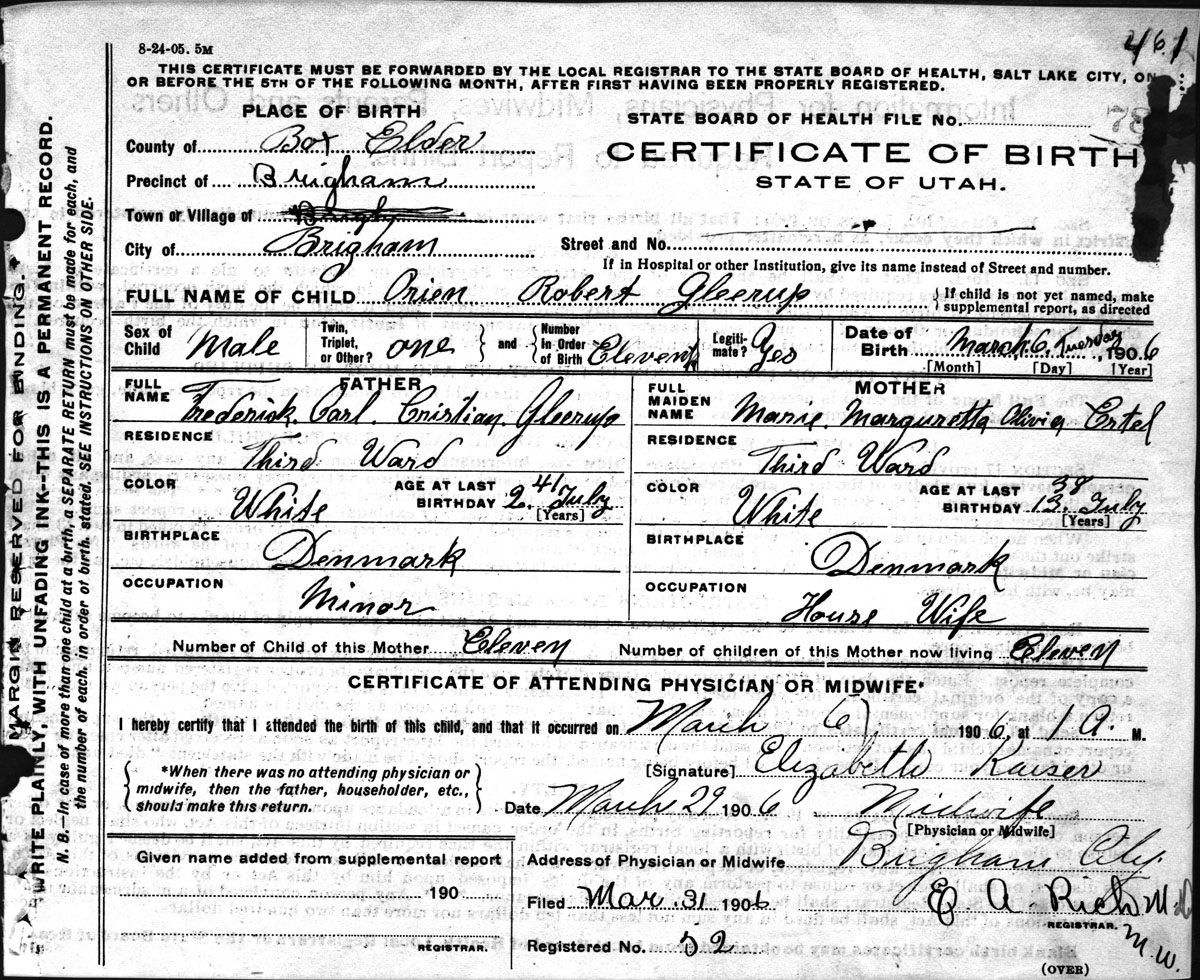 8-24-05. 5M
461
THIS CERTIFICATE MUST BE FORWARDED BY THE LOCAL REGISTRAR TO THE STATE BOARD OF HEALTH, SALT LAKE CITY, ON
OR BEFORE THE 5TH OF THE FOLLOWING MONTH, AFTER FIRST HAVING BEEN PROPERLY REGISTERED.
PLACE OF BIRTH
STATE BOARD OF HEALTH FILE No.
County of Box Elder
CERTIFICATE OF BIRTH
Precinct of Brigham
STATE OF UTAH.
Town or Village of
City of Brigham
Street and No.
If in Hospital or other Institution, give its name instead of Street and number.
FULL NAME OF CHILD Orien Robert Gleerup
If child is not yet named, make
supplemental report, as directed
Sex of Child Male
Twin, Triplet, or Other? one
and
Number In Order of Birth Eleventh
Legitimate? Yes
Date of Birth March 6, Tuesday, 1906
[Month] [Day] [Year]
FATHER
FULL NAME Frederick. Carl. Cristian, Gleerup
RESIDENCE Third Ward
COLOR White
AGE AT LAST BIRTHDAY 41 2. July
[Years]
BIRTHPLACE Denmark
OCCUPATION Minor
MOTHER
FULL MAIDEN NAME Marie. Margaretta Olivia Ertel
RESIDENCE Third Ward
COLOR White
AGE AT LAST BIRTHDAY 38 13. July
[Years]
BIRTHPLACE Denmark
OCCUPATION House Wife
Number of Child of this Mother Eleven
Number of children of this Mother now living Eleven
CERTIFICATE OF ATTENDING PHYSICIAN OR MIDWIFE*
I hereby certify that I attended the birth of this child, and that it occurred on March 6, 1906, at 1 A. M.
*When there was no attending physician or
midwife, then the father, householder, etc.,
should make this return.
[Signature] Elizabeth Kaiser
Date March 29 1906 Midwife
[Physician or Midwife]
Given name added from supplemental report
190
REGISTRAR.
Address of Physician or Midwife Brigham City.
Filed Mar. 31 1906.
E. A. Rich M.D
REGISTRAR.
M.W.
Registered No. 52
(OVER)
MARGIN RESERVED FOR BINDING.
WRITE PLAINLY, WITH UNFADING INK--THIS IS A PERMANENT RECORD.
N. B.--In case of more than one child at a birth, a SEPARATE RETURN must be made for each, and
the number of each, in order of birth, stated. SEE INSTRUCTIONS ON OTHER SIDE.